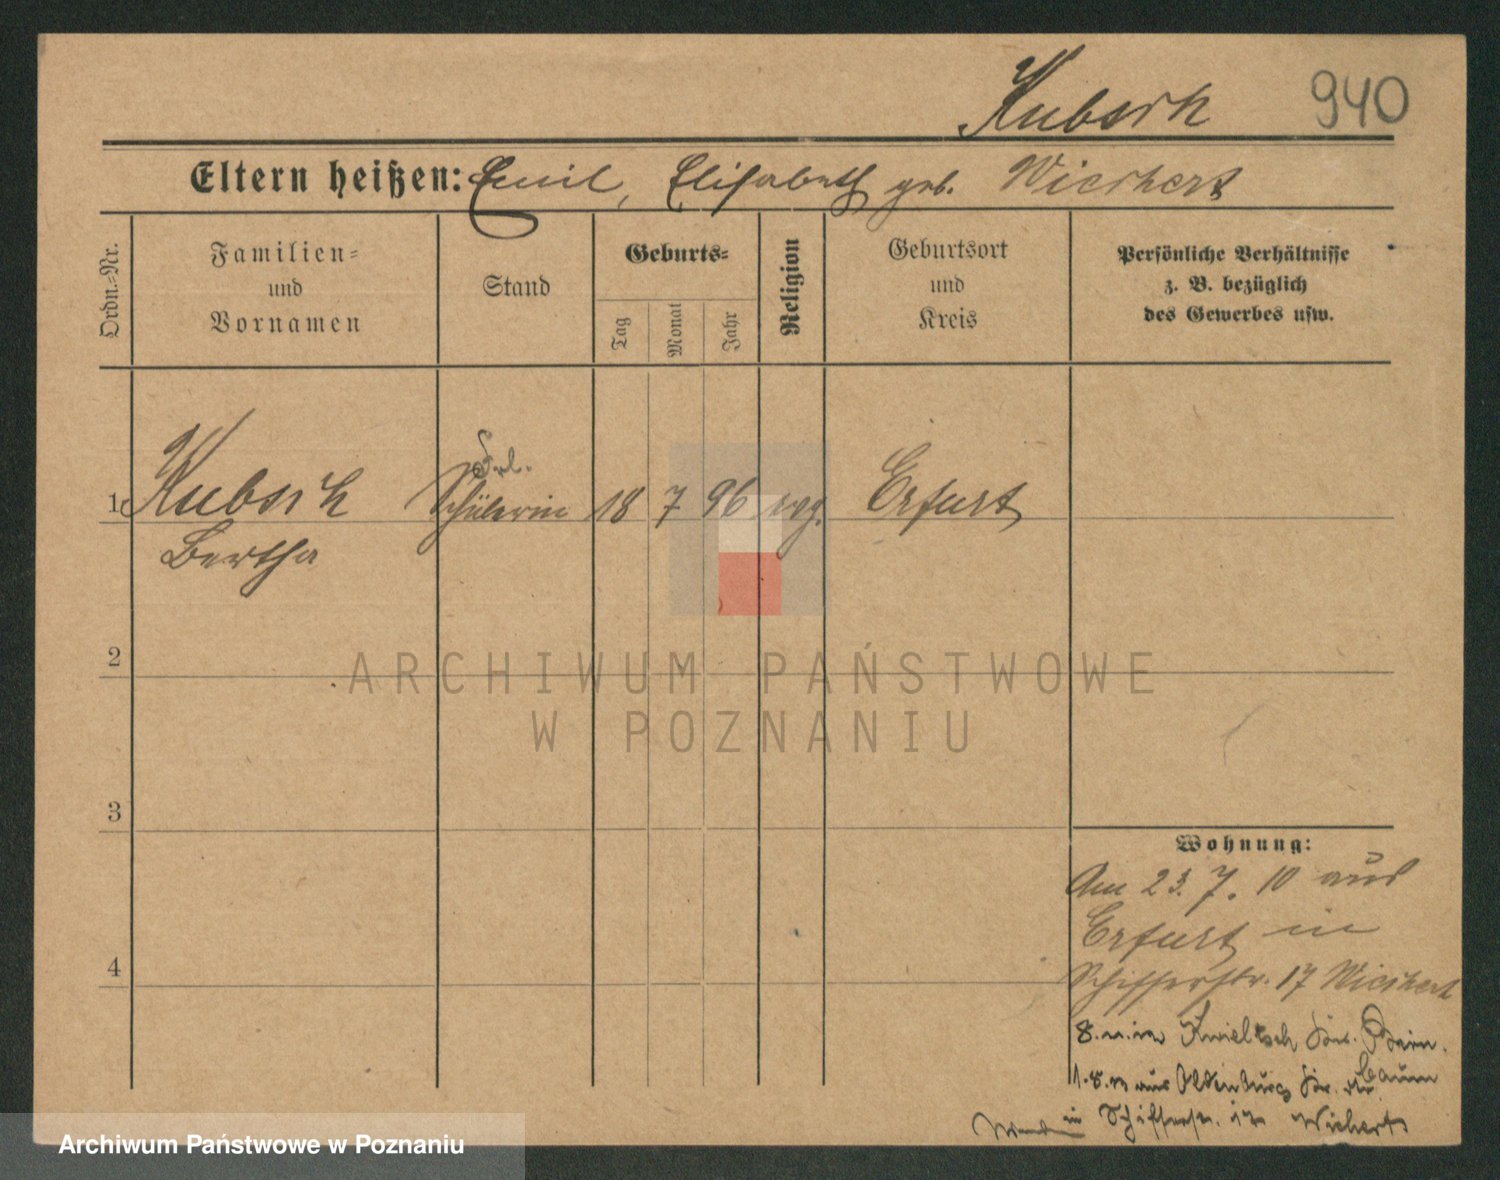 Kubsch 940
Eltern heißen: Emil, Elisabeth geb. Wiechert
Ordn.-Nr.
Familien-
und
Vornamen
Stand
Geburts-
Tag
Monat
Jahr
Religion
Geburtsort
und
Kreis
Persönliche Verhältnisse
z. B. bezüglich
des Gewerbes usw.
Frl.
1 Kubsch Schülerin 18 7 96 evg. Erfurt
Bertha
2
ARCHIWUM PAŃSTWOWE
W POZNANIU
3
Wohnung:
Am 23. 7. 10 aus
Erfurt in
4
Schifferstr. 17 Wiechert
Kwieltsch Birn-
baum
aus Oldenburg
in Schifferstr. Wichert
Archiwum Państwowe w Poznaniu